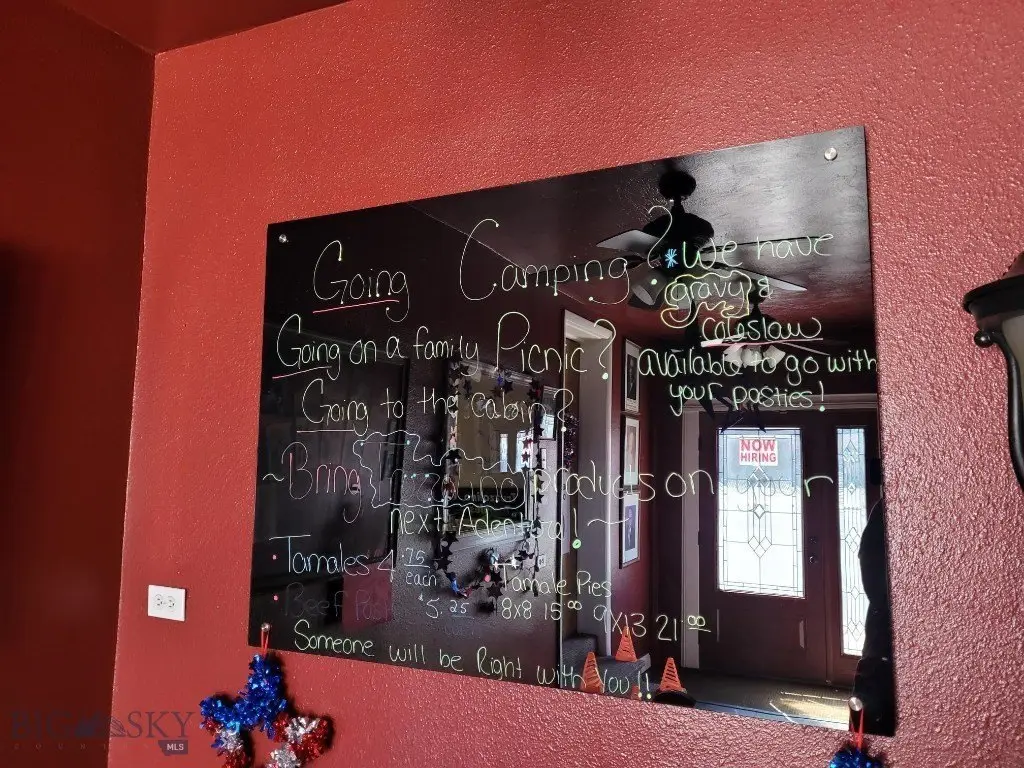 Going Camping?
*We have
gravy &
Coleslaw
Available to go with
your pasties!
Going on a family Picnic?
Going to the cabin?
~Bring products on your
next Adenture!~
Tamales 4.75
each
Beef
$5.25
Tamale Pies
8x8 15.00 9x13 21.00
Someone will be Right with You!!
NOW
HIRING
BIG SKY
MLS